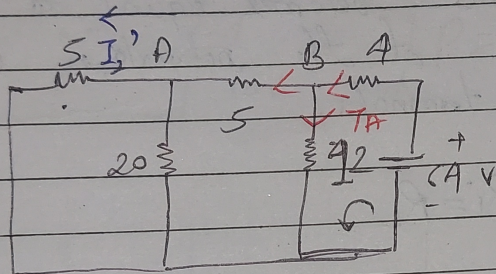 5 I₁' A B 4
5 IA
20 2 +
6A V
-